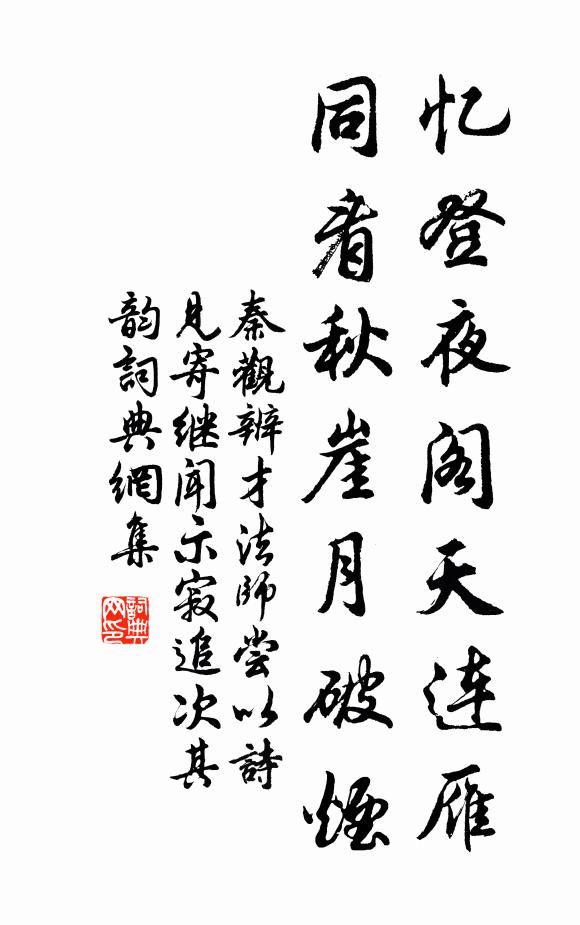 忆登夜阁天连雁
同看秋崖月破烟
秦觀辨才法師尝以詩
见寄继闻示寂追次其
韵詞典網集
詞典网印